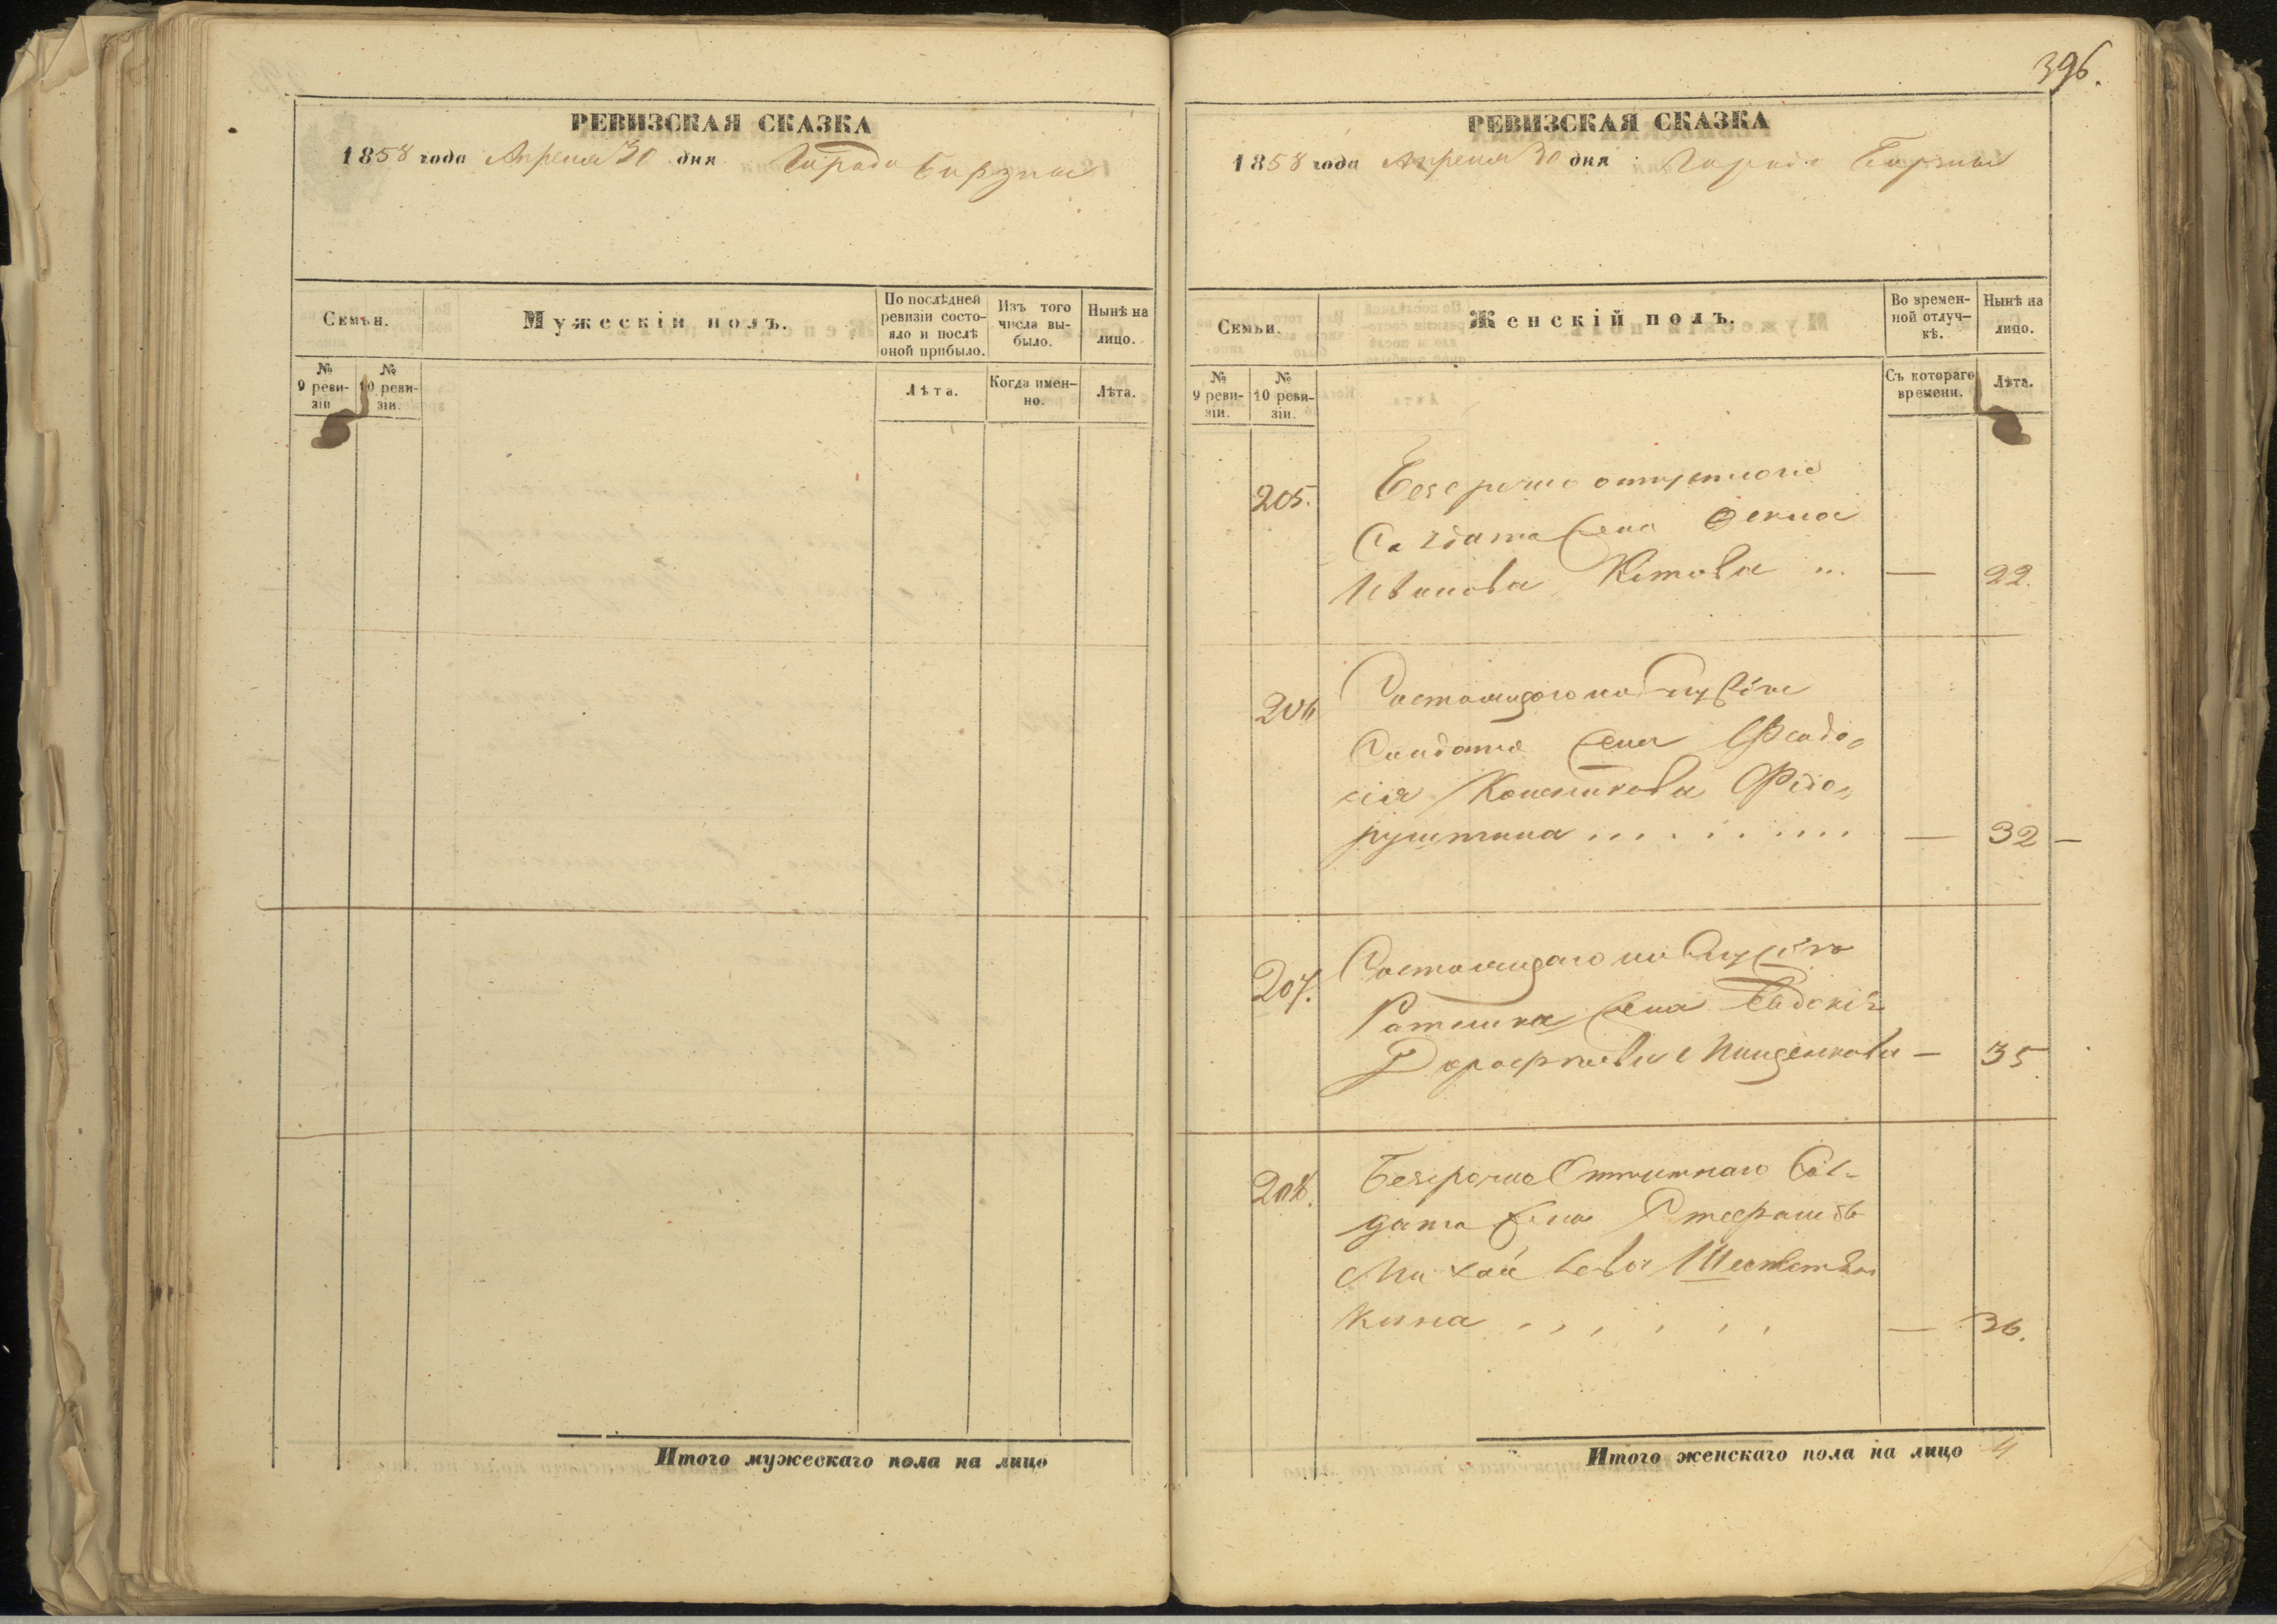 РЕВИЗСКАЯ СКАЗКА
1858 года Апреля 30 дня Города Борзны
Семьи.
Мужескій полъ.
По послѣдней ревизіи состо-
яло и послѣ
оной прибыло.
Изъ того
числа вы-
было.
Нынѣ на
лицо.
№
9 реви-
зіи
№
10 реви-
зіи.
Лѣта.
Когда имен-
но.
Лѣта.
Итого мужескаго пола на лицо
396.
РЕВИЗСКАЯ СКАЗКА
1858 года Апреля 30 дня Города Борзны
Семьи.
Женскій полъ.
Во времен-
ной отлуч-
кѣ.
Нынѣ на
лицо.
№
9 реви-
зіи.
№
10 реви-
зіи.
Съ котораго
времени.
Лѣта.
205. Безсрочно отпускного
Салдата жена Фекла
Иванова — 22.
206 Состоящого на Службе
Салдата жена Феодо-
сія
— 32 —
207. Состоящаго на Службе
Ратника жена Евдокія
Дорофеева — 35
208. Безсрочно Отпускнаго Сол-
дата жена Стефанида
Михайлова
кина — 36.
Итого женскаго пола на лицо 4